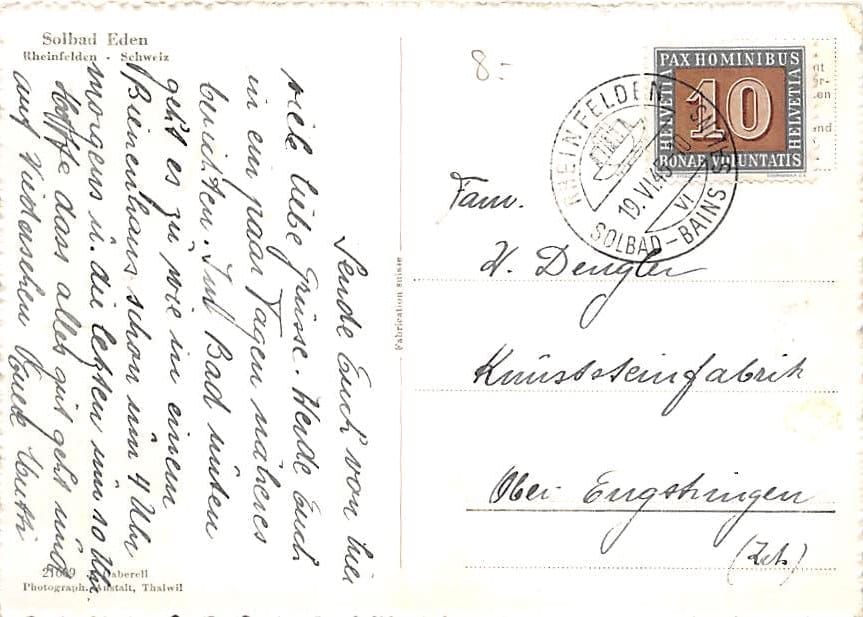 Solbad Eden
Rheinfelden - Schweiz
Sende Euch von hier
viele liebe Grüsse. Werde Euch
in ein paar Tagen näheres
berichten. Im Bad unten
geht es zu wie in einem
Bienenhaus schon um 4 Uhr
morgens u. die letzten um 10 Uhr
Hoffe dass alles gut geht und
auf Wiedersehen Eure Mutti
21609
Gaberell
Photograph. Anstalt, Thalwil
Fabrication Suisse
8=
PAX HOMINIBUS
HELVETIA
10
HELVETIA
BONAE VOLUNTATIS
RHEINFELDEN
19.VI.45
VI
SOLBAD-BAINS SALINS
Fam.
W. Dengler
Kunststeinfabrik
Ober Engstringen
(Zch)